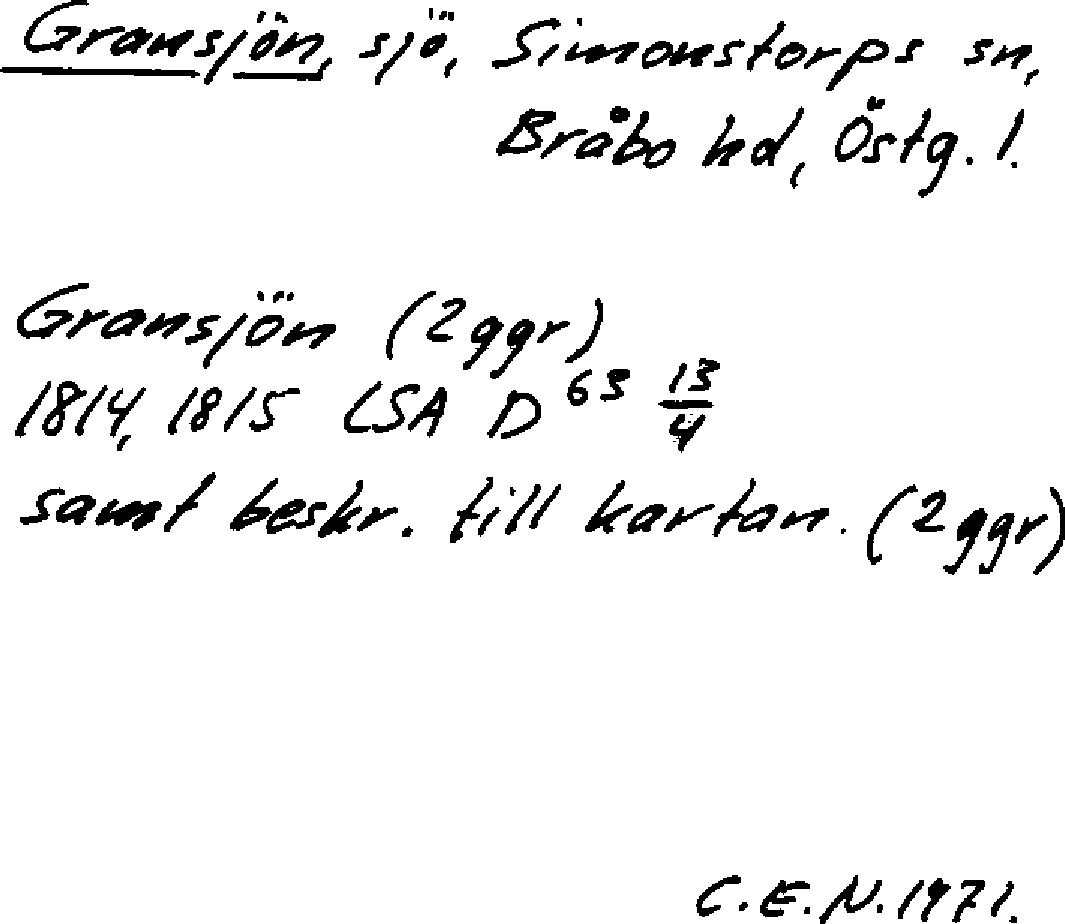 Gransjön, sjö, Simonstorps sn,
Bråbo hd, Östg. l.
Gransjön (2ggr)
1814, 1815 LSA D 63 13/4
samt beskr. till kartan. (2ggr)
C.E.N. 1971.